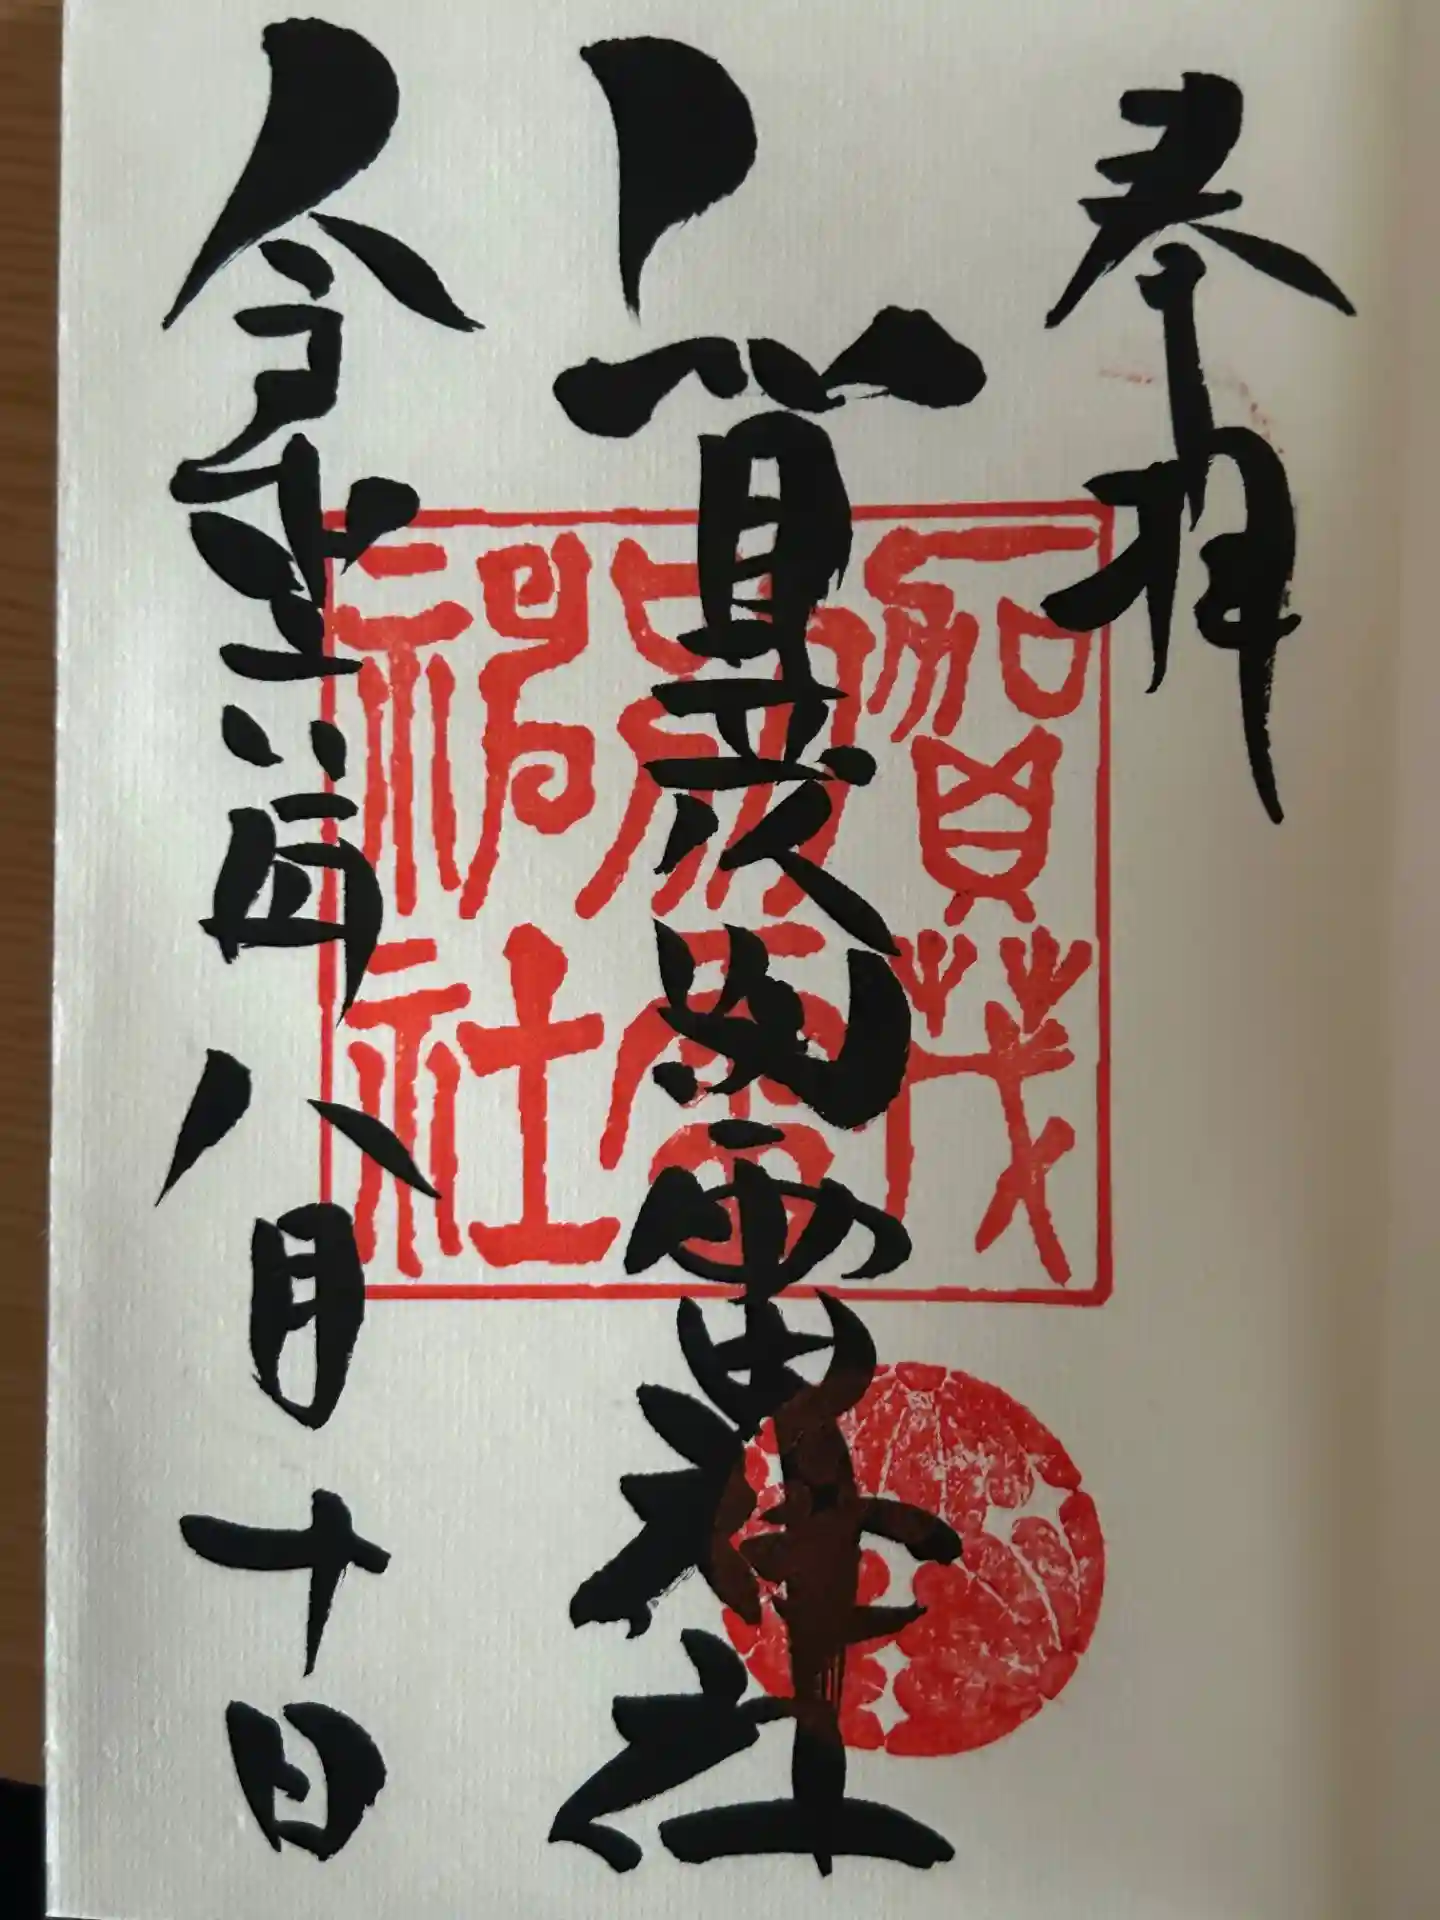 奉拝
賀茂別雷神社
八月十日
賀茂
別雷
神社